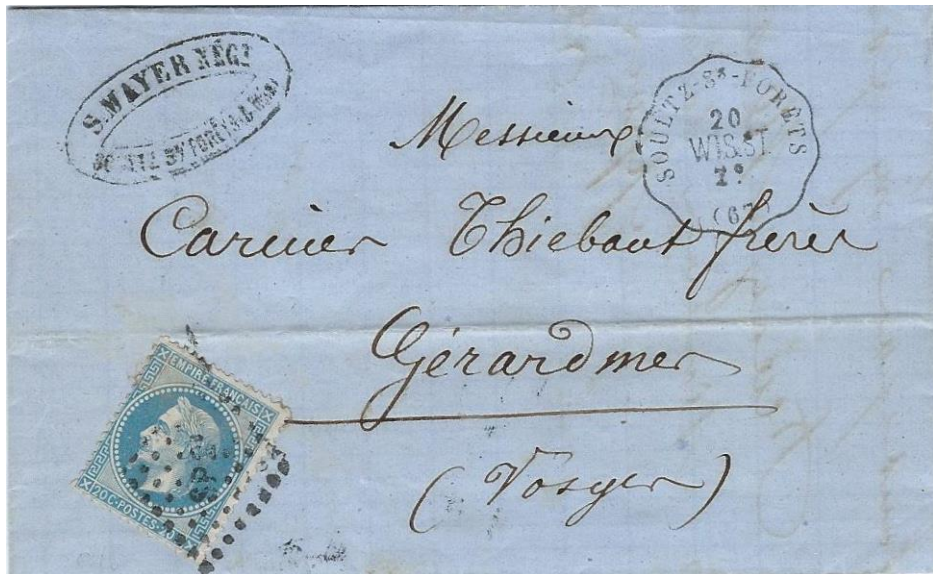 S. MAYER NÉGT
SOULTZ SS/ FORÊTS
SOULTZ-SS-FORETS
20
WIS.ST.
1°
(67)
Messieurs
Thiébaut frères
Gérardmer
(Vosges)
EMPIRE FRANÇAIS
20C·POSTES·20C